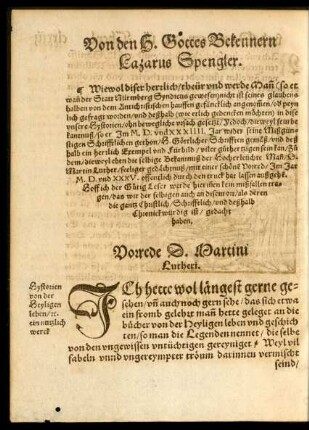 Von den H. Gottes Bekennern
Lazarus Spengler.
¶ Wiewol diser herzlich/theür vnd werde Mañ/so et
wan der Statt Nürnberg Syndicus gewesen/nit vmb seines glaubens
halben von dem Antichristischen hauffen gefäncklich angenom̃en/od' peyn
lich gefragt worden/vnd deßhalb
vnsere Hystorien/
kantnuß/so er Im M. D. vnd XXXIIII. Jar wider seine Mißgün
stigen Schrifftlichen gethon/ Götlicher Schrifften gemäß/vnd deß
halb ein herzlich Exempel vnd Fürbild/
dem/dieweyl eben die selbige Bekantnuß der Hocherleüchte Mañ/D.
Martin Luther/seeliger gedächtnuß/mit einer schönen Vorred/Im Jar
M. D. vnd XXXV. offentlich durch den truck hat lassen außgehn.
Hoff ich der Gütig Leser werde hierinn kein mißfallen tra
gen/das wir der selbigen auch an disem ort/als deren
die gantz Christlich/Schrifftlich/vnd deßhalb
Chronick würdig ist/gedacht
haben.
Vorrede D. Martini
Lutheri.
Hystorien
von der
Heyligen
leben/ꝛc.
ein nutzlich
werck
ICh hette wol längest gerne ge-
sehen/vñ auch noch gern sehe/das sich etwa
ein fromb gelehrt mañ hette geleget an die
bücher von der Heyligen leben vnd geschich
ten/so man die Legenden nennet/die selbe
von den vngewissen vntüchtigen gereyniget/Weyl vil
fabeln vnnd vngereympter tröum darinnen vermischt
seind/